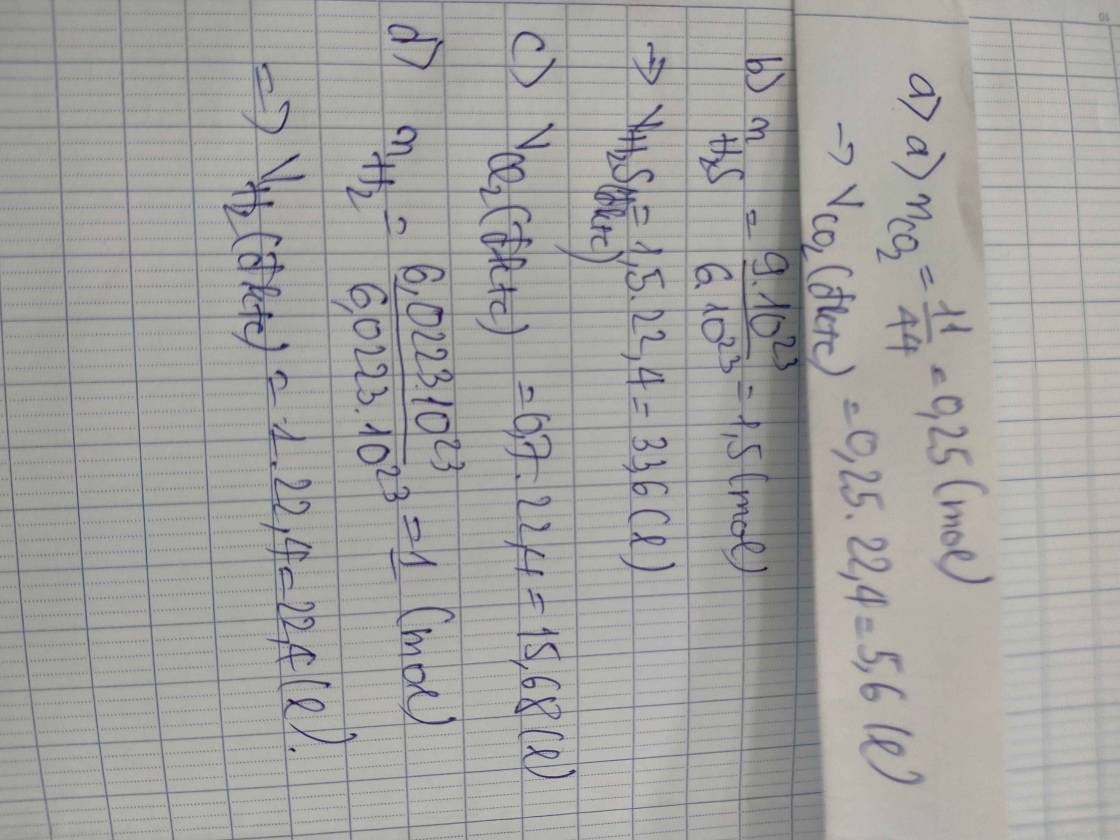 a) a) n CO₂ = 11/44 = 0,25 (mol)
→ V CO₂ (đktc) = 0,25 . 22,4 = 5,6 (l)
b) n H₂S = 9.10²³/6.10²³ = 1,5 (mol)
→ V H₂S (đktc) = 1,5 . 22,4 = 33,6 (l)
c) V CO₂ (đktc) = 0,7 . 22,4 = 15,68 (l)
d) n H₂ = 6,0223.10²³/6,0223.10²³ = 1 (mol)
=> V H₂ (đktc) = 1 . 22,4 = 22,4 (l).